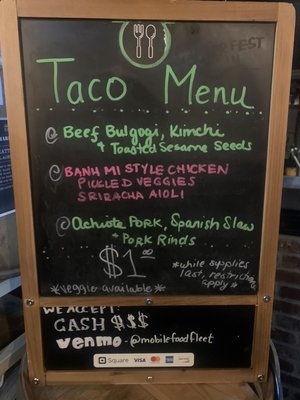 Taco Menu
Beef Bulgogi, Kimchi
& Toasted Sesame Seeds
BANH MI STYLE CHICKEN
PICKLED VEGGIES
SRIRACHA AIOLI
Achiote PORK, Spanish Slaw
+ PORK RINDS
$1.00
*while supplies
last, restrictions
apply*
*veggie available*
WE ACCEPT:
CASH $$$
venmo - @mobilefoodfleet
Square VISA